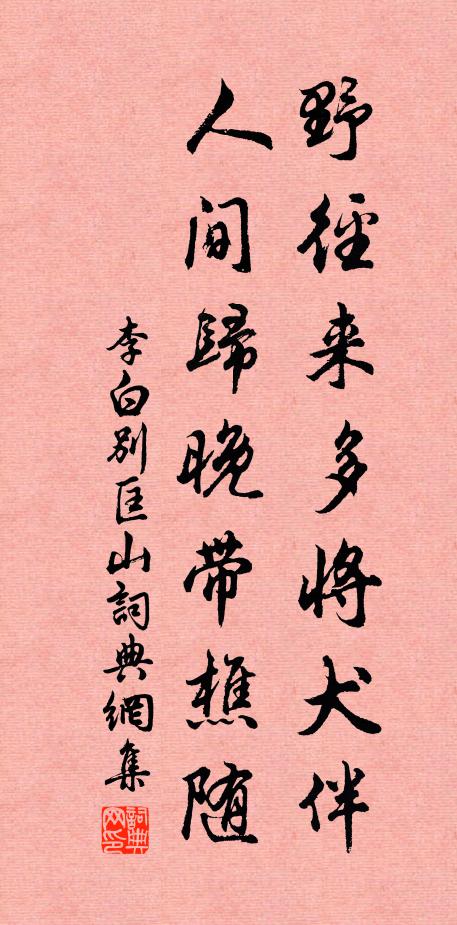 野徑来多將犬伴
人间歸晚带樵随
李白別匡山詞典網集
詞典网印